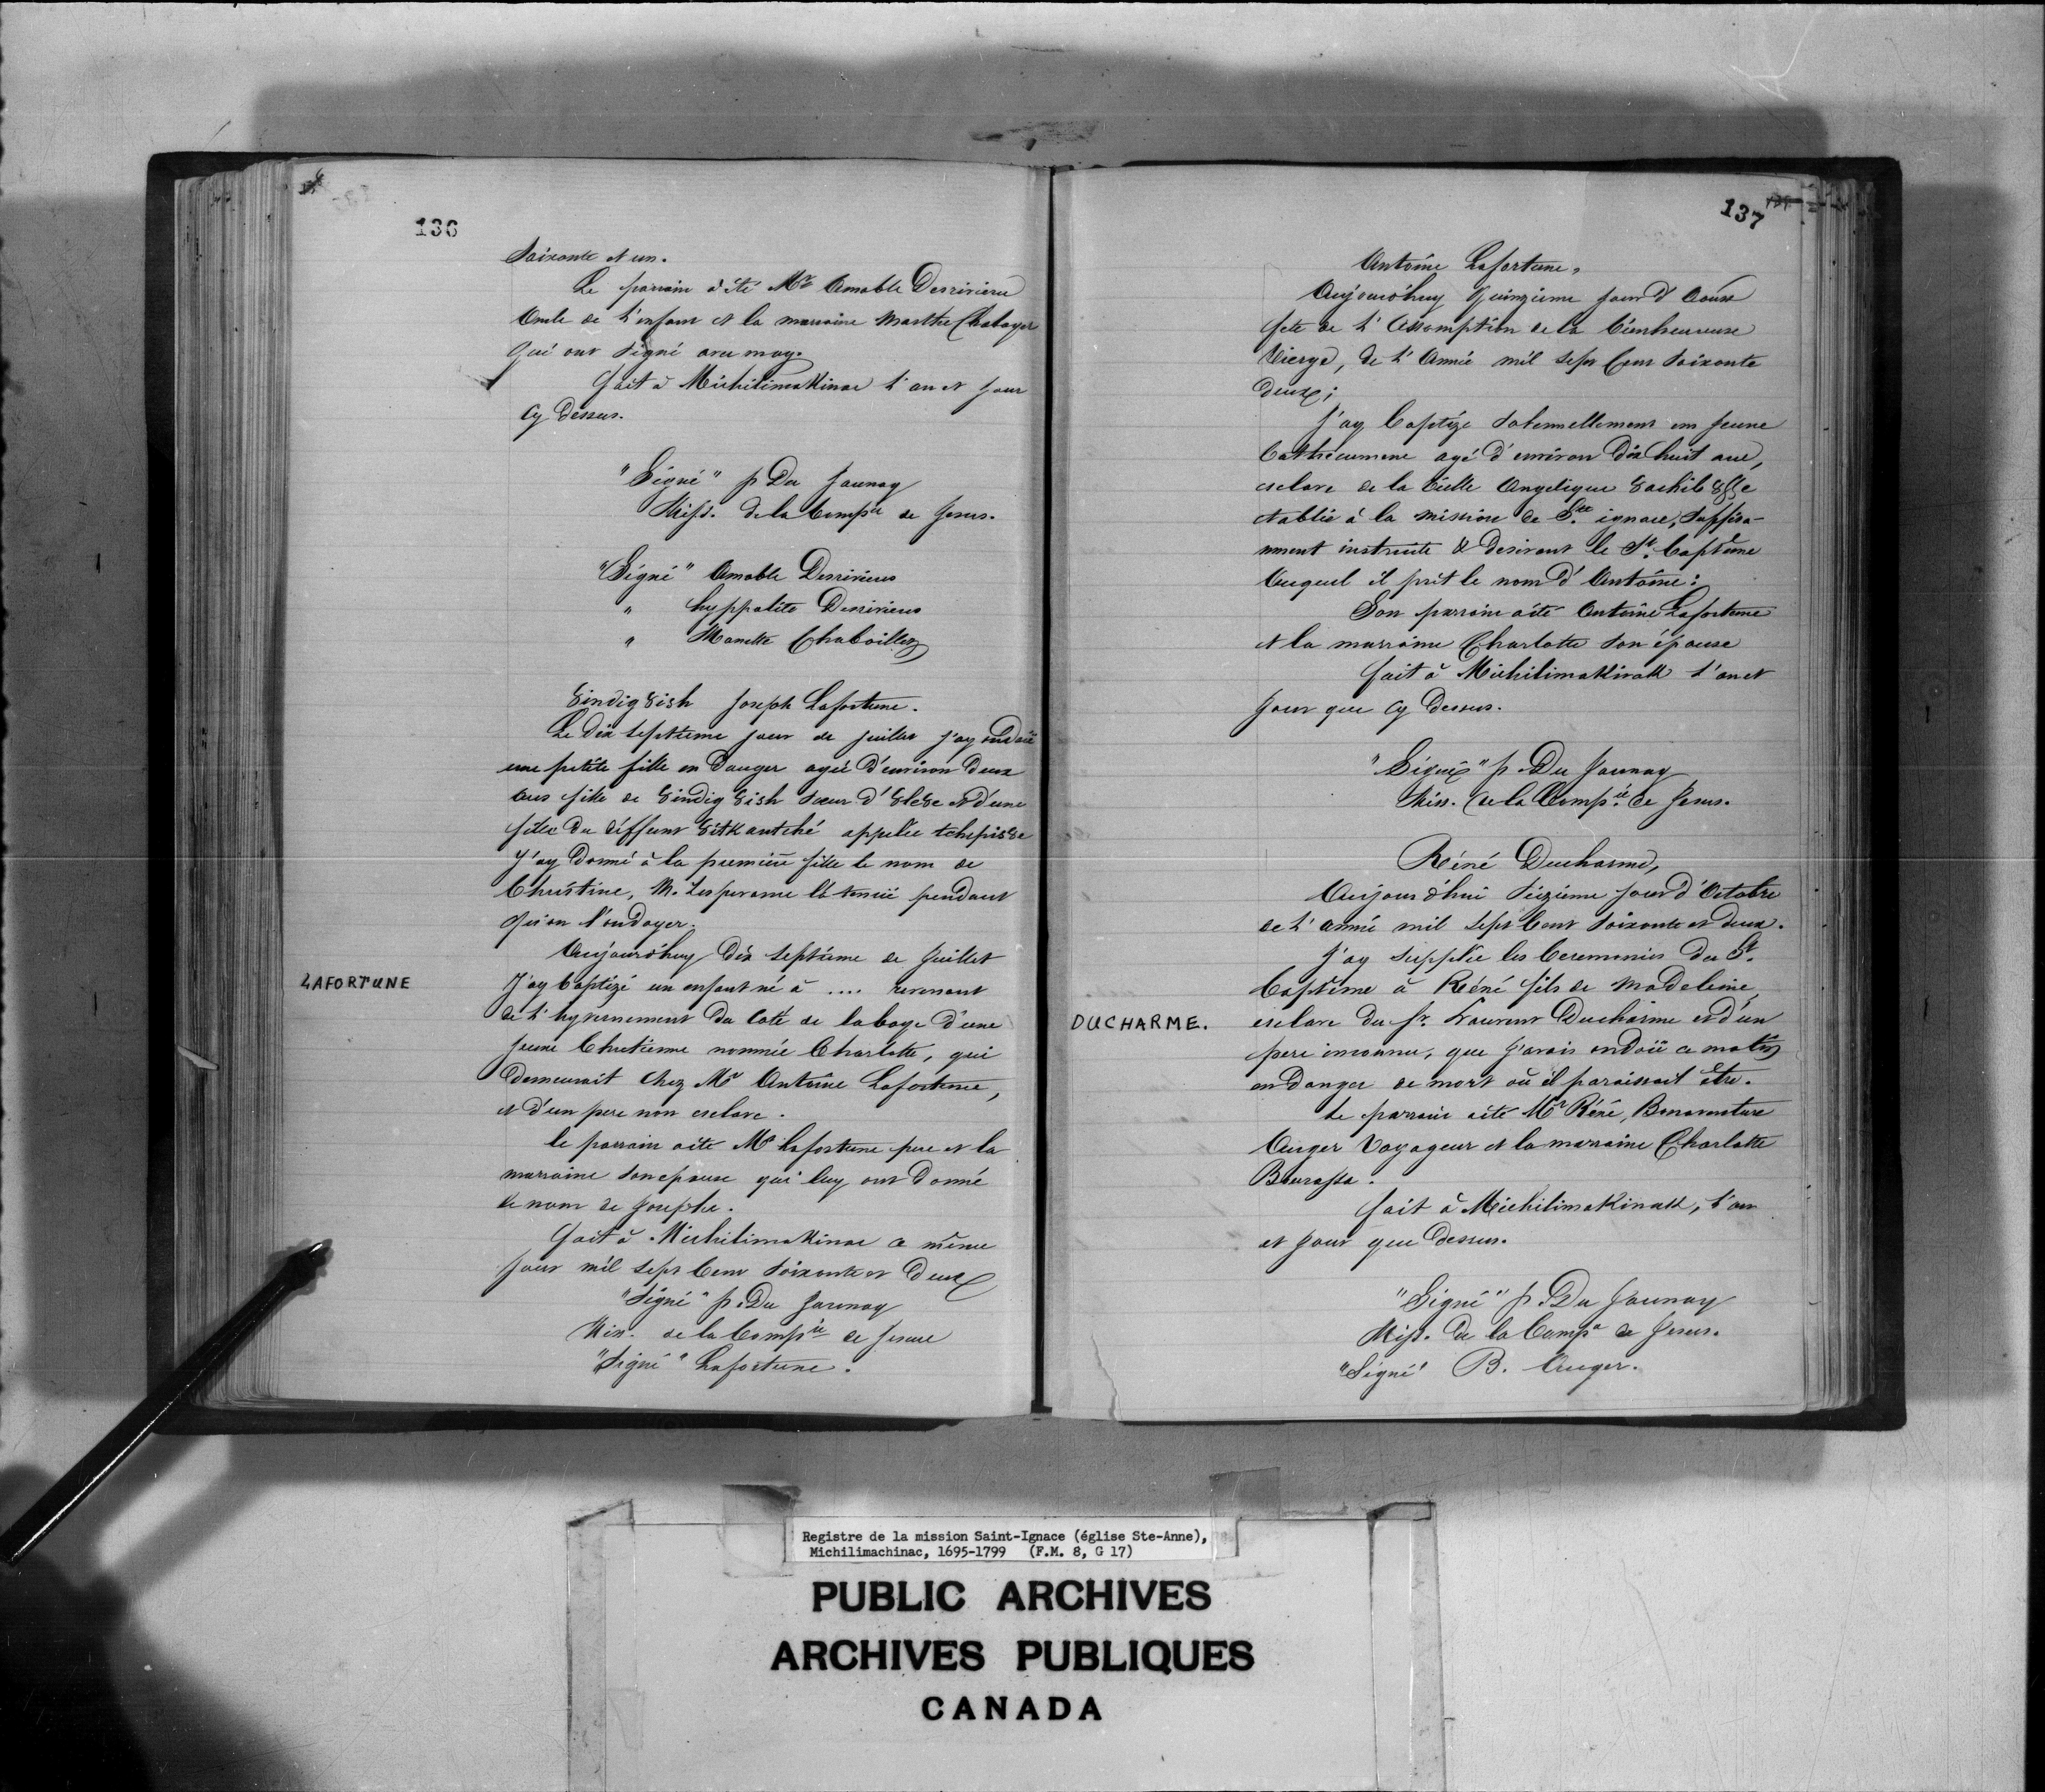 136
Soixante et un.
Le parrain a été Mr Amable Desriviere
Oncle de l'enfant et la marraine Marthe Chaboyer
Qui ont signé avec moy.
fait à Michilimakinac l'an et jour
Cy dessus.
"Signé" p Du Jaunay
Miss. de la Compie de Jesus.
"Signé" Amable Desrivieres
" hyppolite Desrivieres
" Manette Chaboillez
8indig8ish Joseph Lafortune.
Le dix septieme jour de juillet j'ay ondoié
une petite fille en danger agée d'environ deux
ans fille de 8indig8ish soeur d'8le8e et d'une
fille du deffunt 8itkantché appellée tchepis8e
J'ay donné à la premiere fille le nom de
Christine, M. Lesperance l'a tenüe pendant
qu'on l'ondoyer.
Aujourd'huy dix septieme de Juillet
LAFORTUNE
J'ay baptizé un enfant né à .... revenant
de l'hyvernement du coté de la baye d'une
jeune Chretienne nommée Charlotte, qui
demeurait chez Mr Antoine Lafortune,
et d'un pere non esclave.
le parrain a été Mr Lafortune pere et la
marraine son epouse qui luy ont donné
le nom de Josephe.
fait à Michilimakinac ce même
jour mil sept Cent soixante et deux
"Signé" p. Du Jaunay
Miss. de la Compie de Jesus
"Signé" Lafortune.
137
Antoine Lafortune,
Aujourd'huy Quinzieme jour d'Aoust
fete de l'Assomption de la bienheureuse
Vierge, de l'Année mil sept Cent soixante
deux;
J'ay baptizé solennellement un jeune
Cathécumene agé d'environ dix huit ans,
esclave de la vieille Angelique
etablie à la mission de St. ignace, suffisa-
mment instruite & desirant le St. baptême
Auquel il prit le nom d'Antoine:
Son parrain a été Antoine Lafortune
et la marraine Charlotte son épouse
fait à Michilimakinak l'an et
jour que Cy dessus.
"Signé" p. Du Jaunay
Miss. de la Compie de Jesus.
Réné Ducharme,
Aujourd'hui seizieme jour d'Octobre
de l'année mil sept Cent soixante et deux.
J'ay supplée les Ceremonies du St.
baptême à Réné fils de Madeleine,
DUCHARME.
esclave du Sr. Laurent Ducharme et d'un
pere inconnu, que j'avais ondoié ce matin
en danger de mort où il paraissait être.
Le parrain a été Mr Réné, Bonaventure
Auger Voyageur et la marraine Charlotte
Bourassa.
fait à Michilimakinak, l'an
et jour que dessus.
"Signé" p. Du Jaunay
Miss. de la Compe de Jesus.
"Signé" B. Auger.
Registre de la mission Saint-Ignace (église Ste-Anne),
Michilimachinac, 1695-1799 (F.M. 8, G 17)
PUBLIC ARCHIVES
ARCHIVES PUBLIQUES
CANADA